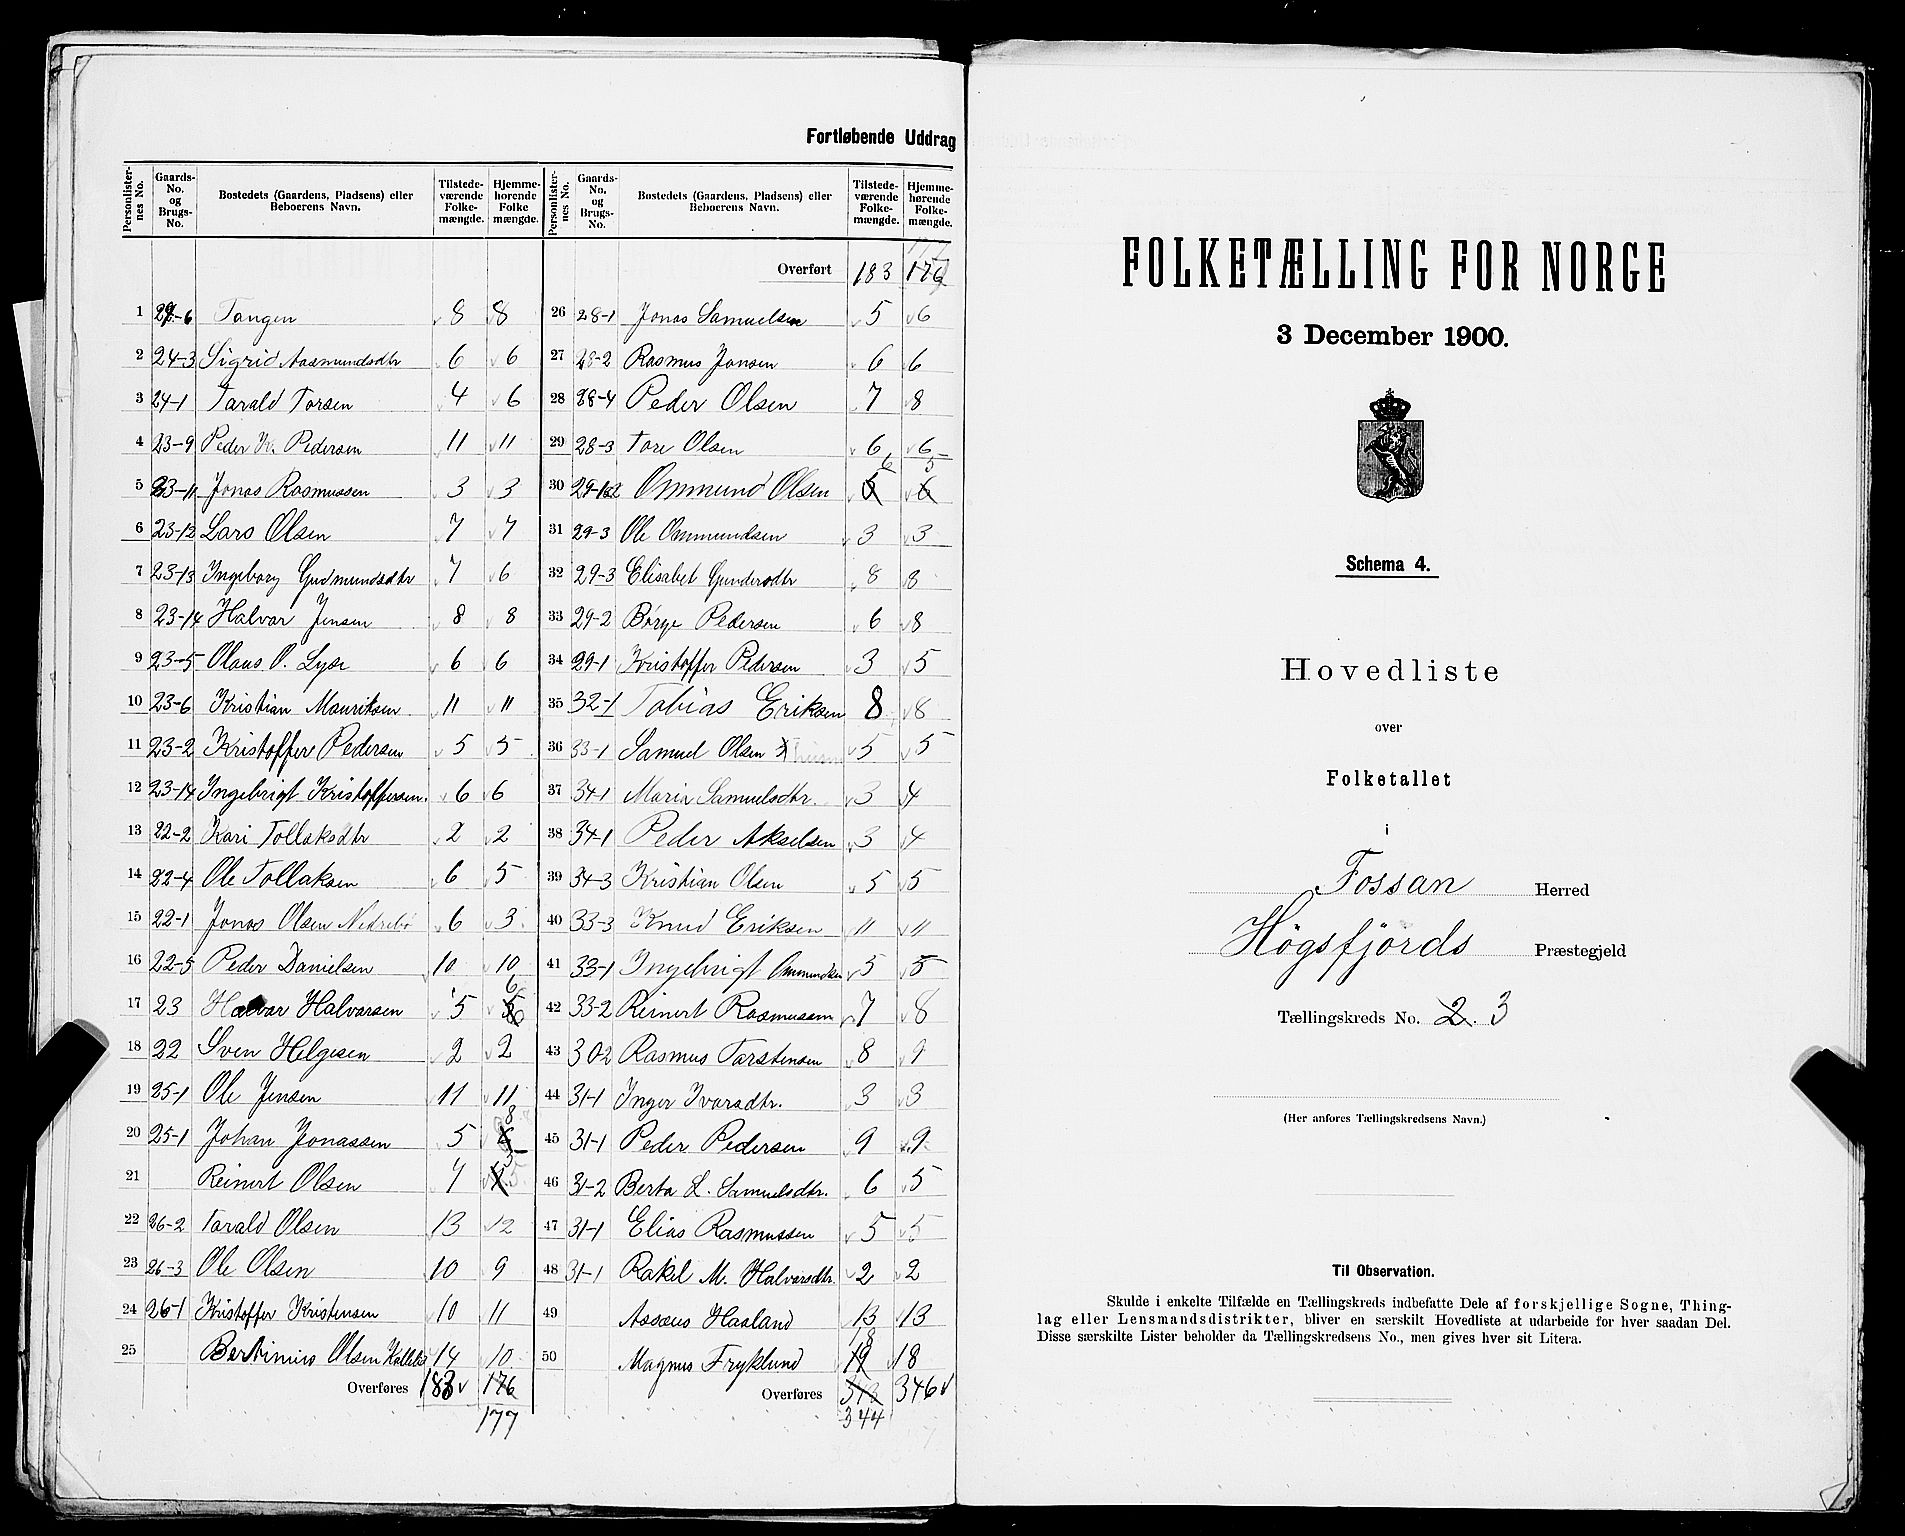 Fortløbende Uddrag
Personlisternes No.
Gaards-No. og Brugs-No.
Bostedets (Gaardens, Pladsens) eller Beboerens Navn.
Tilstedeværende Folkemængde.
Hjemmehørende Folkemængde.
1 6 Tangen 8 8
2 24-3 Sigrid Aasmundsdtr 6 6
3 24-1 Tarald Torsen 4 6
4 23-9 Peder K. Pedersen 11 11
5 23-11 Jonas Rasmussen 3 3
6 23-12 Lars Olsen 7 7
7 23-13 Ingeborg Gudmundsdtr 7 6
8 23-14 Halvar Jensen 8 8
9 23-5 Olaus O. Lyse 6 6
10 23-6 Kristian Mauritsen 11 11
11 23-2 Kristoffer Pedersen 5 5
12 23-14 Ingebrigt Kristoffersen 6 6
13 22-2 Kari Tollaksdtr 2 2
14 22-4 Ole Tollaksen 6 5
15 22-1 Jonas Olsen Nedrebö 6 3
16 22-5 Peder Danielsen 10 10
17 23 Halvar Halvarsen 5 6
18 22 Sven Helgesen 2 2
19 25-1 Ole Jensen 11 11
20 25-1 Johan Jonassen 5 8
21 Reinert Olsen 7 5
22 26-2 Tarald Olsen 13 12
23 26-3 Ole Olsen 10 9
24 26-1 Kristoffer Kristensen 10 11
25 Bertinius Olsen 14 10
Overføres 183 176
177
Personlisternes No.
Gaards-No. og Brugs-No.
Bostedets (Gaardens, Pladsens) eller Beboerens Navn.
Tilstedeværende Folkemængde.
Hjemmehørende Folkemængde.
Overført 183 176
26 28-1 Jonas Samuelsen 5 6
27 28-2 Rasmus Jonsen 6 6
28 28-4 Peder Olsen 7 8
29 28-3 Tore Olsen 6 6
30 Ommund Olsen 6 5
31 29-3 Ole Ommundsen 3 3
32 29-3 Elisabet Gundersdtr 8 8
33 29-2 Börge Pedersen 6 8
34 29-1 Kristoffer Pedersen 3 5
35 32-1 Tobias Eriksen 8 8
36 33-1 Samuel Olsen 5 5
37 34-1 Maria Samuelsdtr. 3 4
38 34-1 Peder Akselsen 3 4
39 34-3 Kristian Olsen 5 5
40 33-3 Knud Eriksen 11 11
41 33-1 Ingebrigt Ommundsen 5 5
42 33-2 Reinert Rasmussen 7 8
43 30 2 Rasmus Tarstensen 8 9
44 31-1 Inger Ivarsdtr. 3 3
45 31-1 Peder Pedersen 9 9
46 31-2 Berta L. Samuelsdtr. 6 5
47 31-1 Elias Rasmussen 5 5
48 31-1 Rakel M. Halvarsdtr. 2 2
49 Assæus Haaland 13 13
50 Magnus Fryklund 18 18
Overføres 343 346
344
FOLKETÆLLING FOR NORGE
3 December 1900.
Schema 4.
Hovedliste
over
Folketallet
i
Fossan Herred
Högsfjörds Præstegjeld
Tællingskreds No. 2. 3
(Her anføres Tællingskredsens Navn.)
Til Observation.
Skulde i enkelte Tilfælde en Tællingskreds indbefatte Dele af forskjellige Sogne, Thing-
lag eller Lensmandsdistrikter, bliver en særskilt Hovedliste at udarbeide for hver saadan Del.
Disse særskilte Lister beholder da Tællingskredsens No., men gives hver sit Litera.